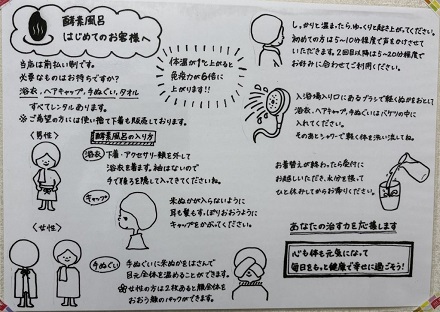 酵素風呂
はじめてのお客様へ
当店は前払い制です。
必要なものはお持ちですか?
浴衣、ヘアキャップ、手ぬぐい、タオル
すべてレンタルあります。
※ご希望の方には使い捨て下着も販売しております。
体温が1℃上がると
免疫力が6倍に
上がります!!
酵素風呂の入り方
〈男性〉
浴衣 下着・アクセサリー類を外して
浴衣を着ます。紐はないので
手で前を隠して入ってきてくださいね。
キャップ 米ぬかが入らないように
耳も髪もすっぽりおおうように
キャップをかぶってください。
〈女性〉
手ぬぐい 手ぬぐいに米ぬかをはさんで
目元全体を温めることができます。
女性の方は2枚あると顔全体を
おおう顔のパックができます。
しっかりと温まったら、ゆっくりと起き上がってください。
初めての方は5〜10分程度で声をかけさせて
いただきます。2回目以降は5〜20分程度で
お好みに合わせてご利用ください。
入浴場入り口にあるブラシで軽くぬかをおとして
浴衣、ヘアキャップ、手ぬぐいはバケツの中に
入れてください。
そのあとシャワーで軽く体を洗い流してね。
お着替えが終わったら受付に
お越しいただき、水分を摂って
ひと休みしてからお帰りください。
あなたの治す力を応援します
心も体も元気になって
毎日をもっと健康で幸せに過ごそう!